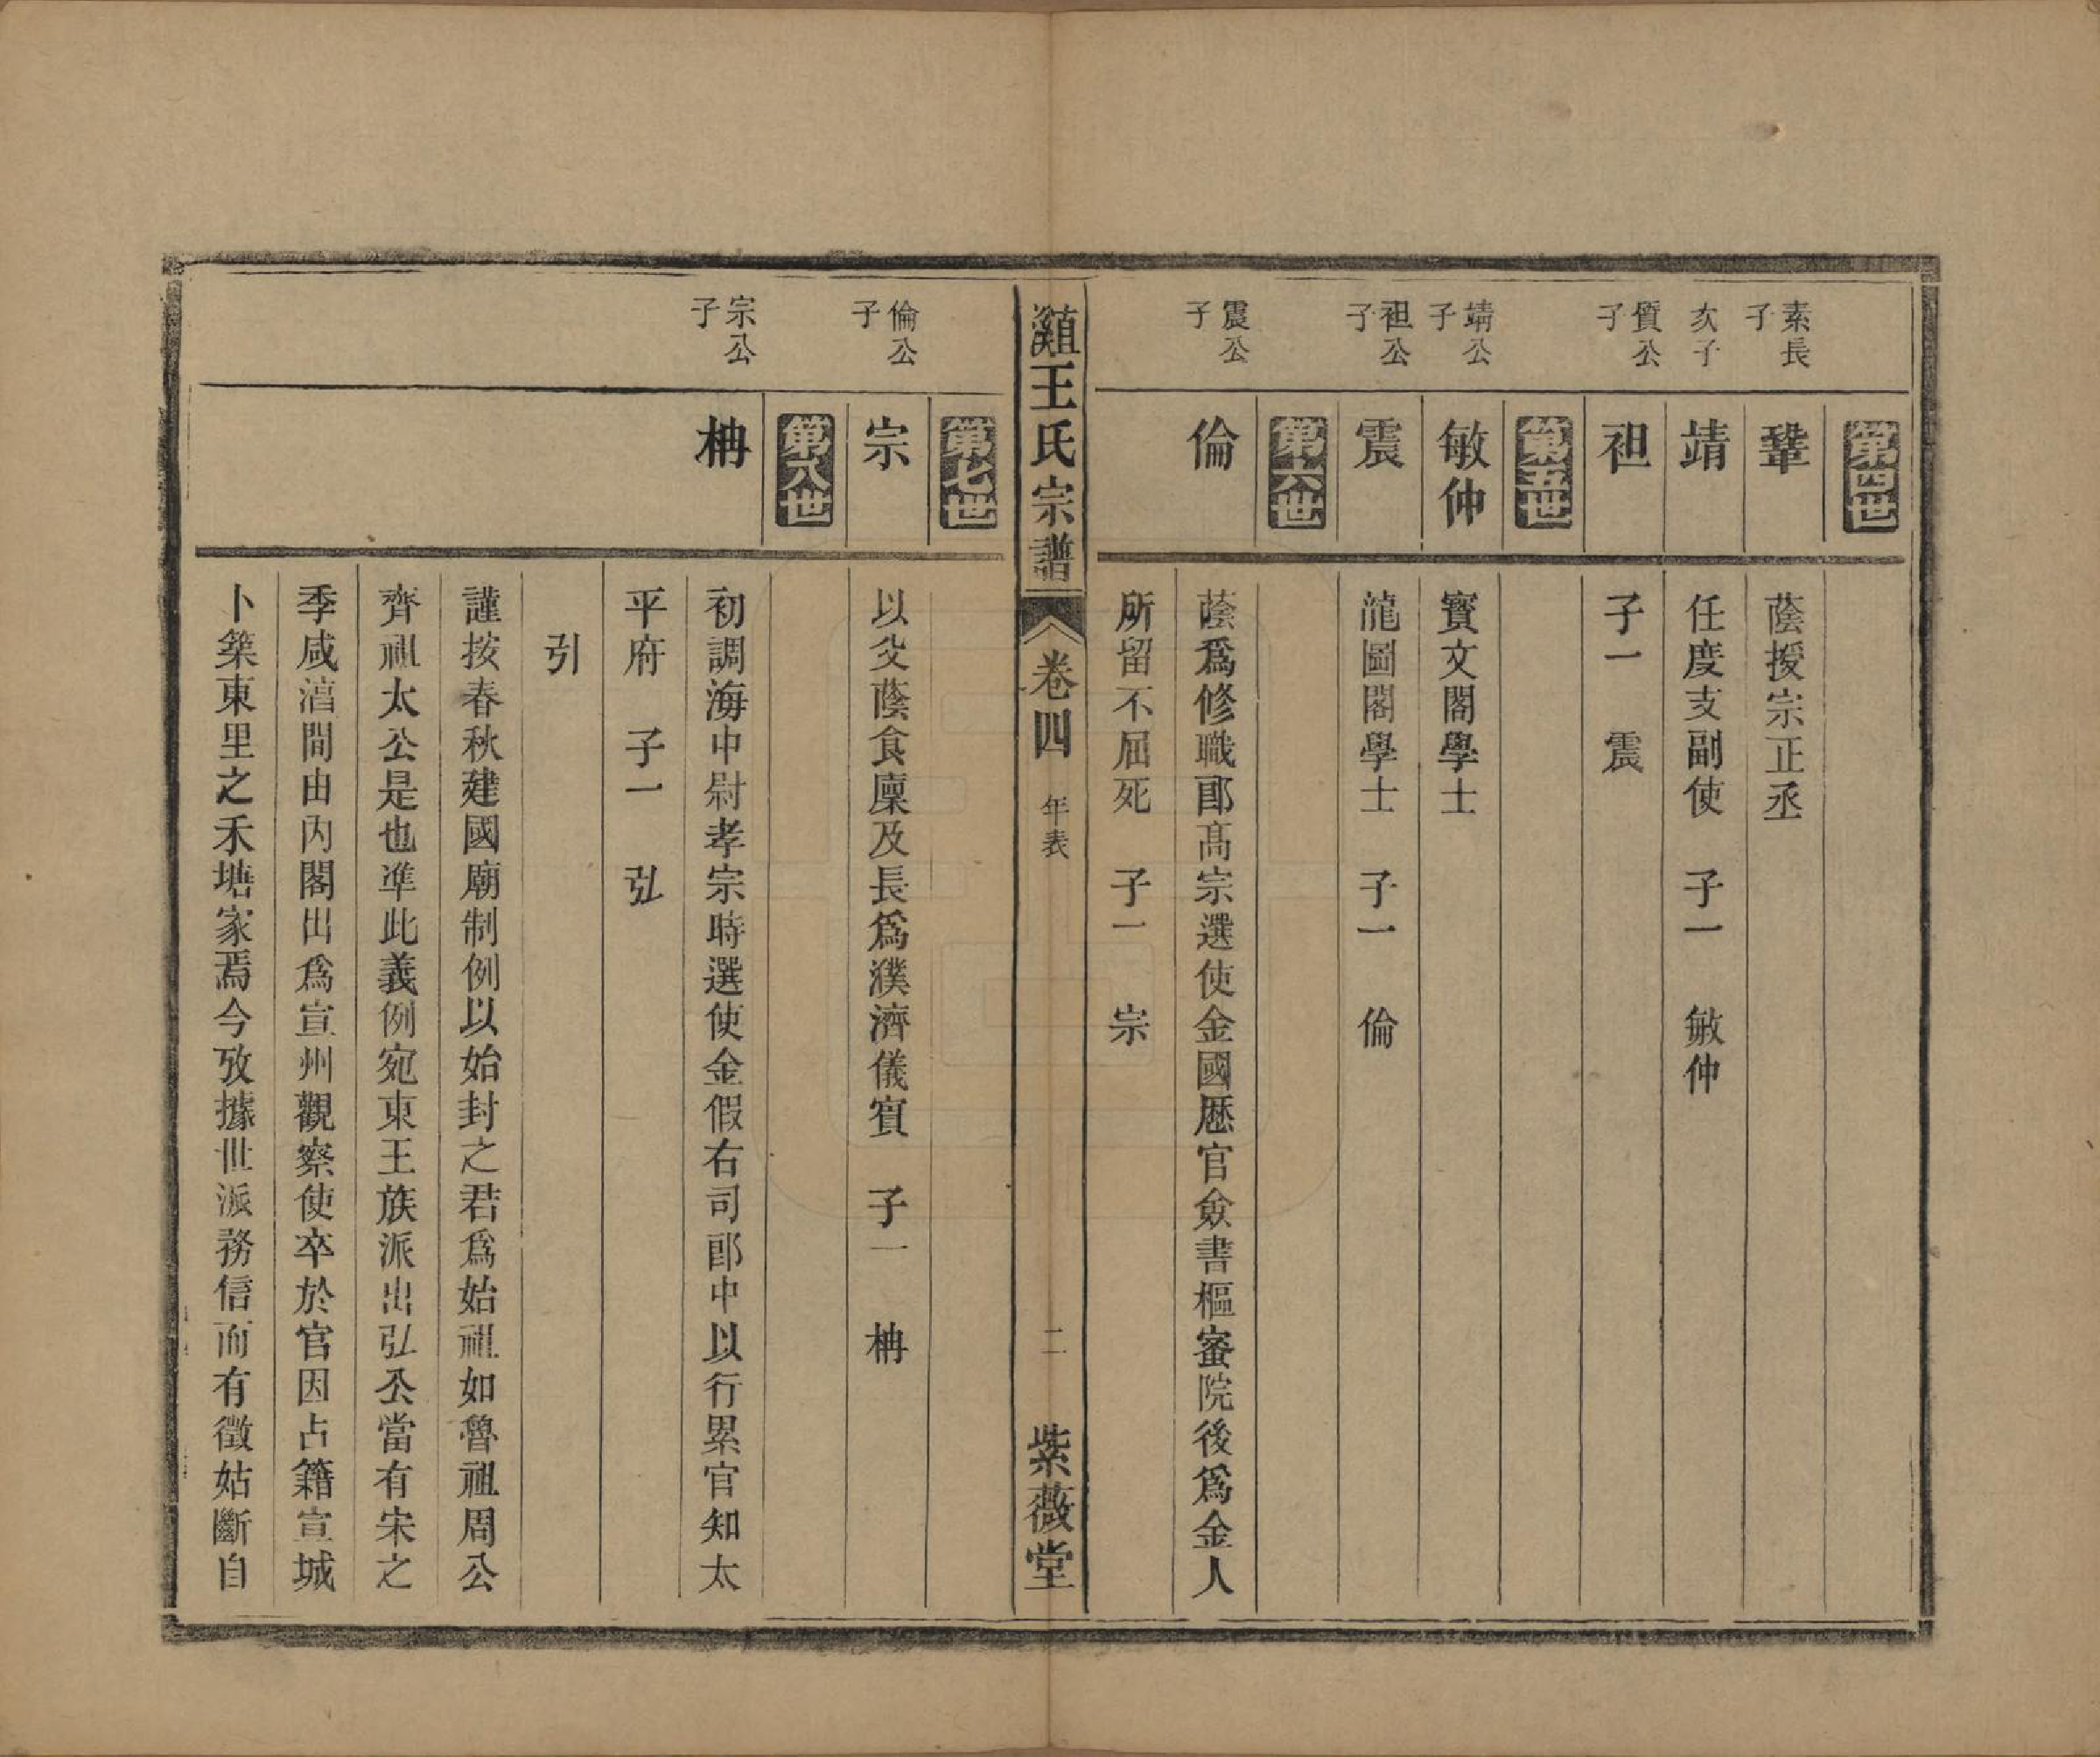 第四世
素長子
鞏
蔭授宗正丞
次子
靖
任度支副使　子一　敏仲
質公子
袓
子一　震
第五世
靖公子
敏仲
寳文閣學士
袓公子
震
龍圖閣學士　子一　倫
第六世
震公子
倫
蔭爲修職郎髙宗選使金國歷官僉書樞宻院後爲金人
所留不屈死　子一　宗
王氏宗譜
卷四
年表
二
紫薇堂
第七世
倫公子
宗
以父蔭食廩及長爲濮濟儀賓　子一　柟
第八世
宗公子
柟
初調海中尉孝宗時選使金假右司郎中以行累官知太
平府　子一　弘
引
謹按春秋建國廟制例以始封之君爲始祖如魯祖周公
齊祖太公是也準此義例宛東王族派出弘公當有宋之
季咸湻間由內閣出爲宣州觀察使卒於官因占籍宣城
卜築東里之禾塘家焉今攷據世派務信而有徵姑斷自